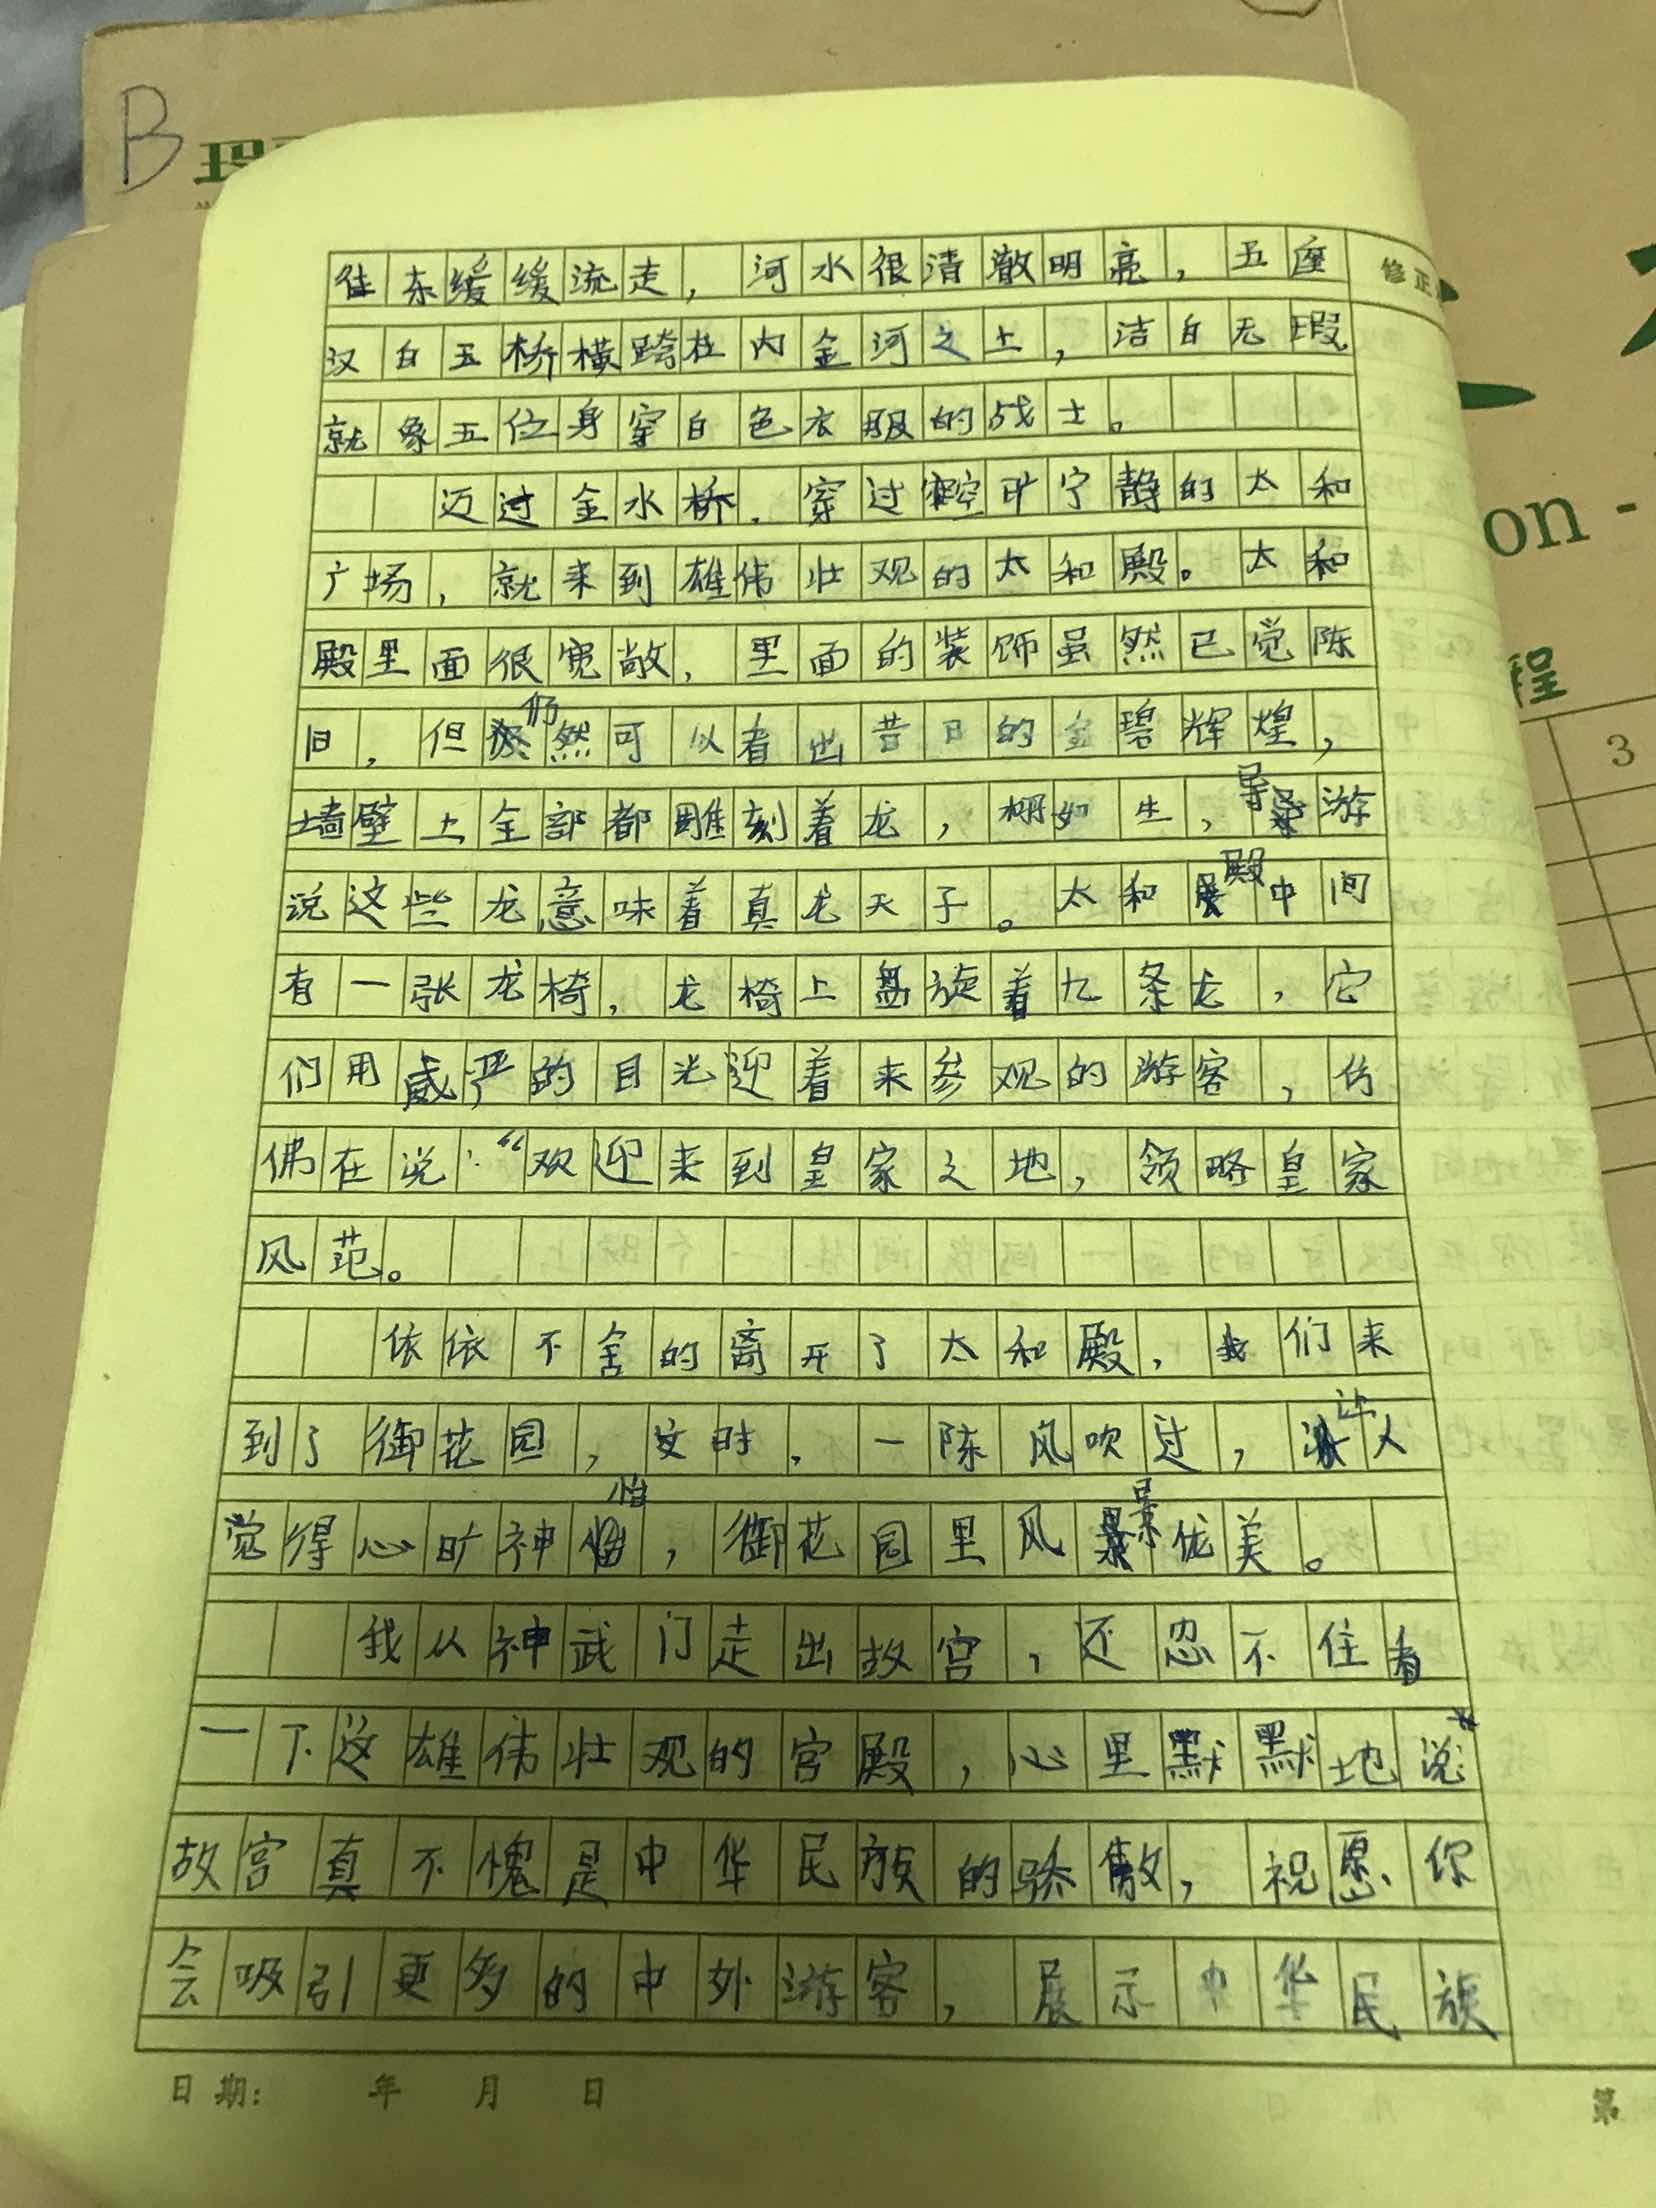 B
修正
往东缓缓流走，河水很清澈明亮，五座
汉白玉桥横跨在内金河之上，洁白无瑕
就象五位身穿白色衣服的战士。
迈过金水桥，穿过空旷宁静的太和
广场，就来到雄伟壮观的太和殿。太和
殿里面很宽敞，里面的装饰虽然已觉陈
旧，但仍然可以看出昔日的金碧辉煌，
墙壁上全部都雕刻着龙，栩如生，导游
说这些龙意味着真龙天子。太和殿中间
有一张龙椅，龙椅上盘旋着九条龙，它
们用威严的目光迎着来参观的游客，仿
佛在说：“欢迎来到皇家之地，领略皇家
风范。
依依不舍的离开了太和殿，我们来
到了御花园，这时，一陈风吹过，让人
觉得心旷神怡，御花园里风景优美。
我从神武门走出故宫，还忍不住看
一下这雄伟壮观的宫殿，心里默默地说
故宫真不愧是中华民族的骄傲，祝愿你
会吸引更多的中外游客，展示中华民族
日期： 年 月 日
第
on -
程
3